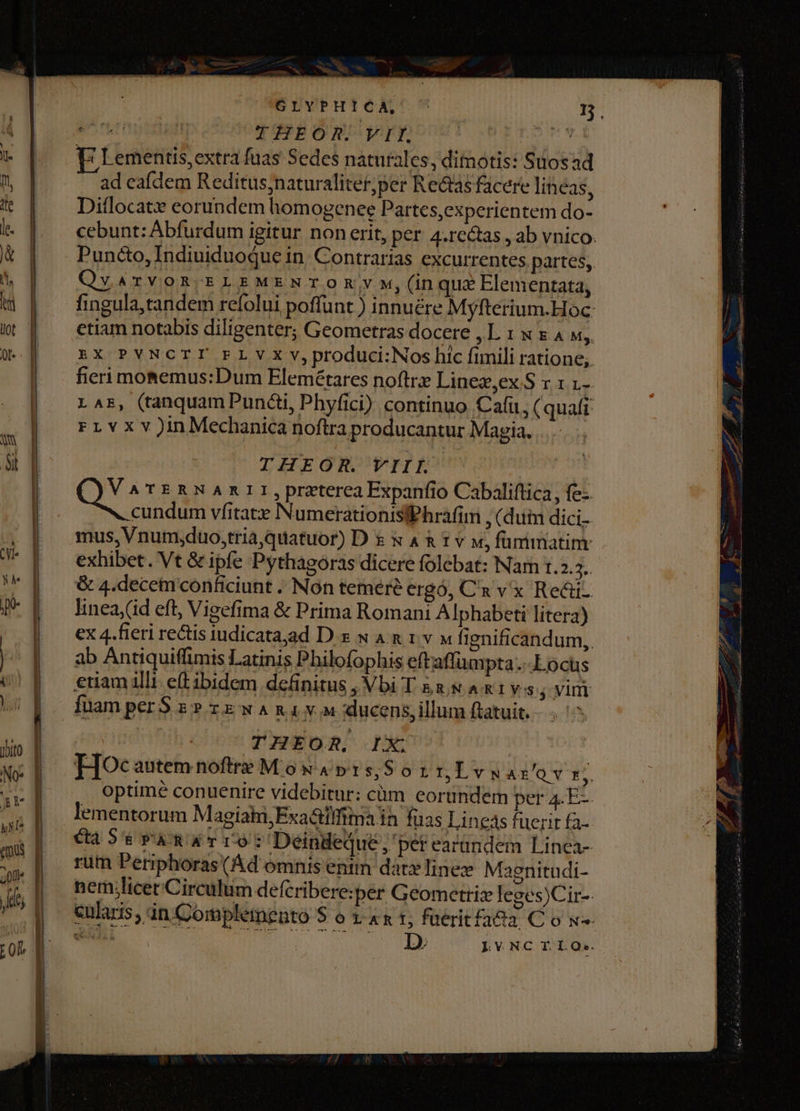 GLYPHICA, 13.
THEOR. VII.
ELementis, extra ſuas Sedes naturales, dimotis: Suos ad
ad eaſdem Reditus, naturaliter, per Rectas facere lineas,
Diſlocatæ eorundem homogeneę Partes, experientem do-
cebunt: Abſurdum igitur non erit, per 4. rectas, ab vnico
Puncto, Indiuiduoque in Contrarias excurrentes partes,
QVATVOR ELEMENTORVM, (in quæ Elementata,
ſingula, tandem reſolui poſſunt) innuêre Myſterium. Hoc
etiam notabis diligenter; Geometras docere, LINEAM,
EX PVNCTI FLVXV, produci: Nos hîc ſimili ratione,
fieri monemus: Dum Elemētares noſtræ Lineæ, ex STIL-
LAE, (tanquam Puncti, Phyſici) continuo Caſu, (quaſi
FLVXV) in Mechanica noſtra producantur Magia.
THEOR. VIII.
QVATERNARII, præterea Expanſio Cabaliſtica, ſe-
cundum vſitatæ Numerationis Phraſim, (dum dici-
mus, Vnum, duo, tria, quatuor) DENARIVM, ſummatim
exhibet. Vt & ipſe Pythagoras dicere ſolebat: Nam 1.2.3.
& 4. decem conficiunt. Non temerè ergò, CRVX Recti-
linea, (id eſt, Vigeſima & Prima Romani Alphabeti litera)
ex 4. fieri rectis iudicata, ad DENARIVM ſignificandum,
ab Antiquiſſimis Latinis Philoſophis eſt aſſumpta. Locus
etiam illi eſt ibidem definitus, Vbi TERNARIVS, vim
ſuam per SEPTENARIVM ducens, illum ſtatuit.
THEOR. IX.
HOc autem noſtræ MONADIS, SOLI, LVNAE'QVE,
optimè conuenire videbitur: cùm eorundem per 4. E-
lementorum Magiam, Exactiſſima in ſuas Lineas fuerit fa-
cta SEPARATIO: Deindeque, per earundem Linea-
rum Periphoras (Ad omnis enim datæ lineæ Magnitudi-
nem, licet Circulum deſcribere: per Geometriæ leges) Cir-
cularis, in Complemento SOLARI, fuerit facta CON-
D IVNCTIO.